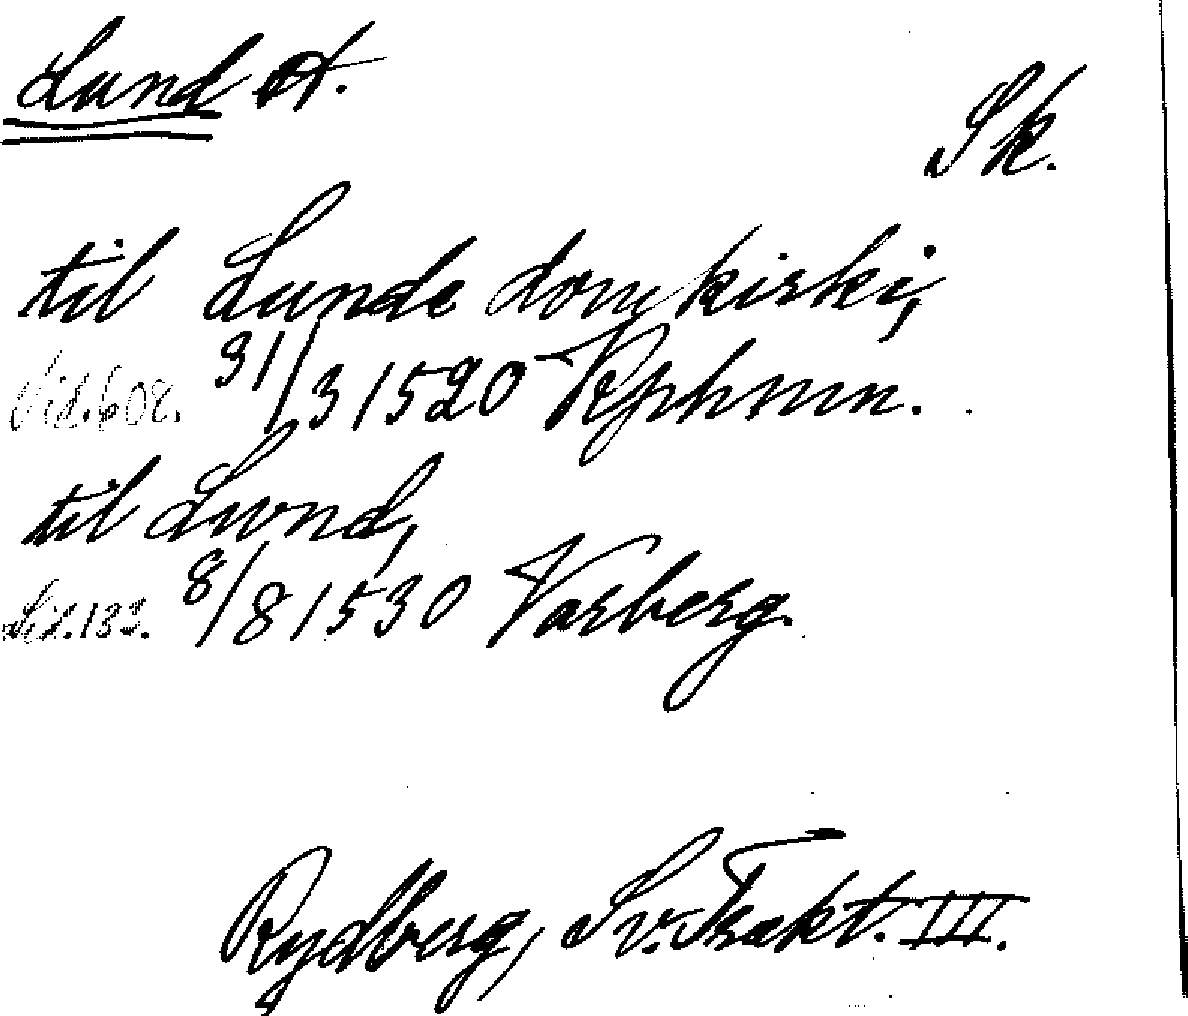 Lund A.
Sk.
til Lunde domkirki,
Sid. 608. 31/3 1520 Kphmn.
til Lwnd,
Sid. 133. 8/8 1530 Varberg.
Rydberg, Sv. Trakt. III.